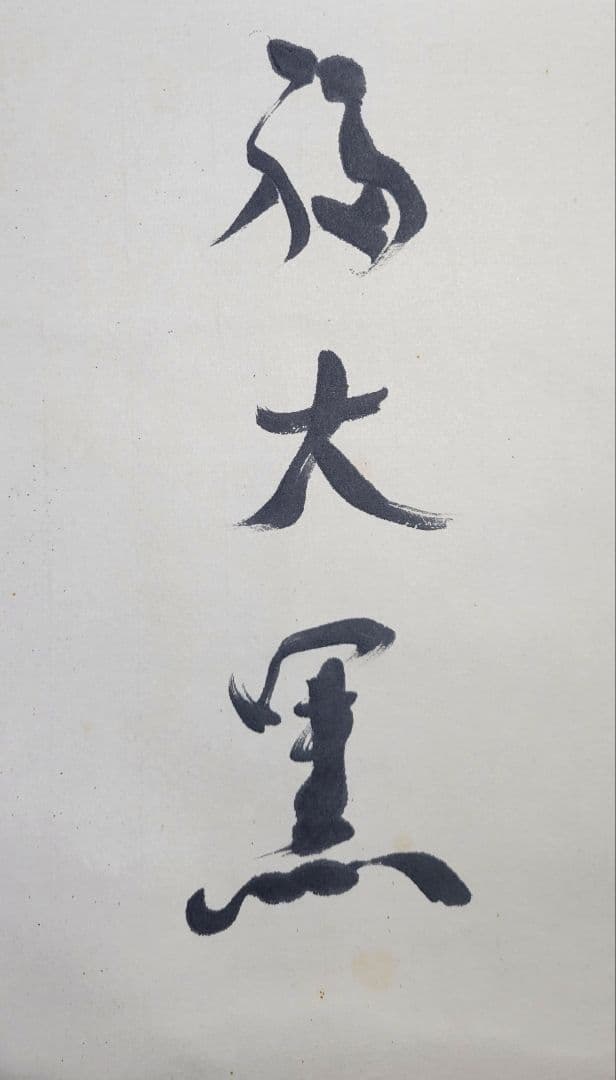 福大黒